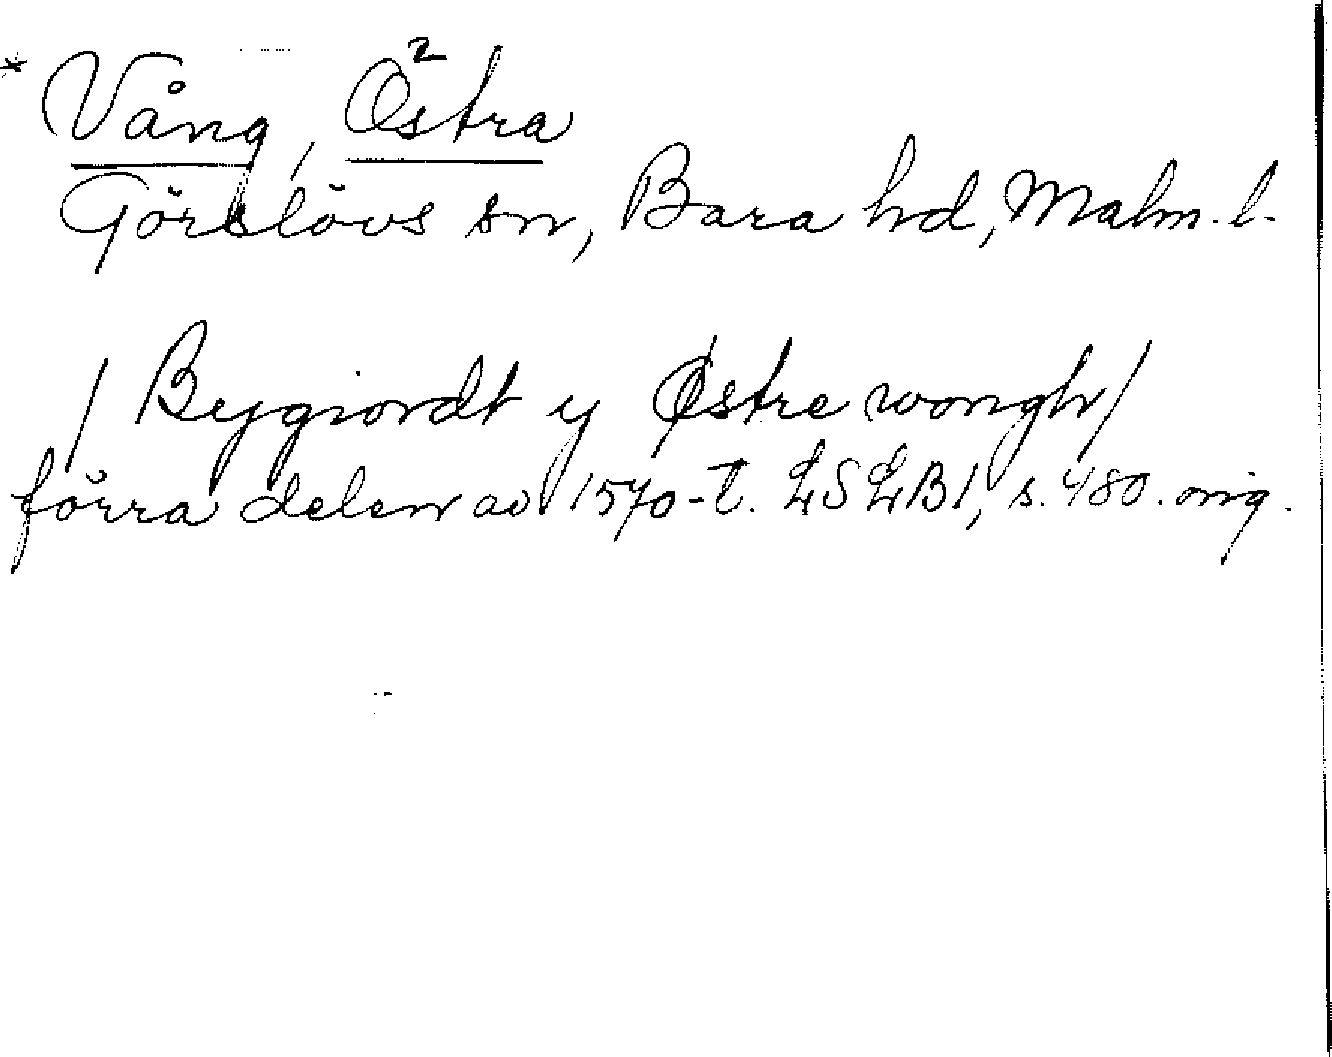 * Vång, Östra
Görslövs sn, Bara hd, Malm. l.
/ Bygiordt y Østre wongh /
förra delen av 1570-t. LSLB 1, s. 480. orig.